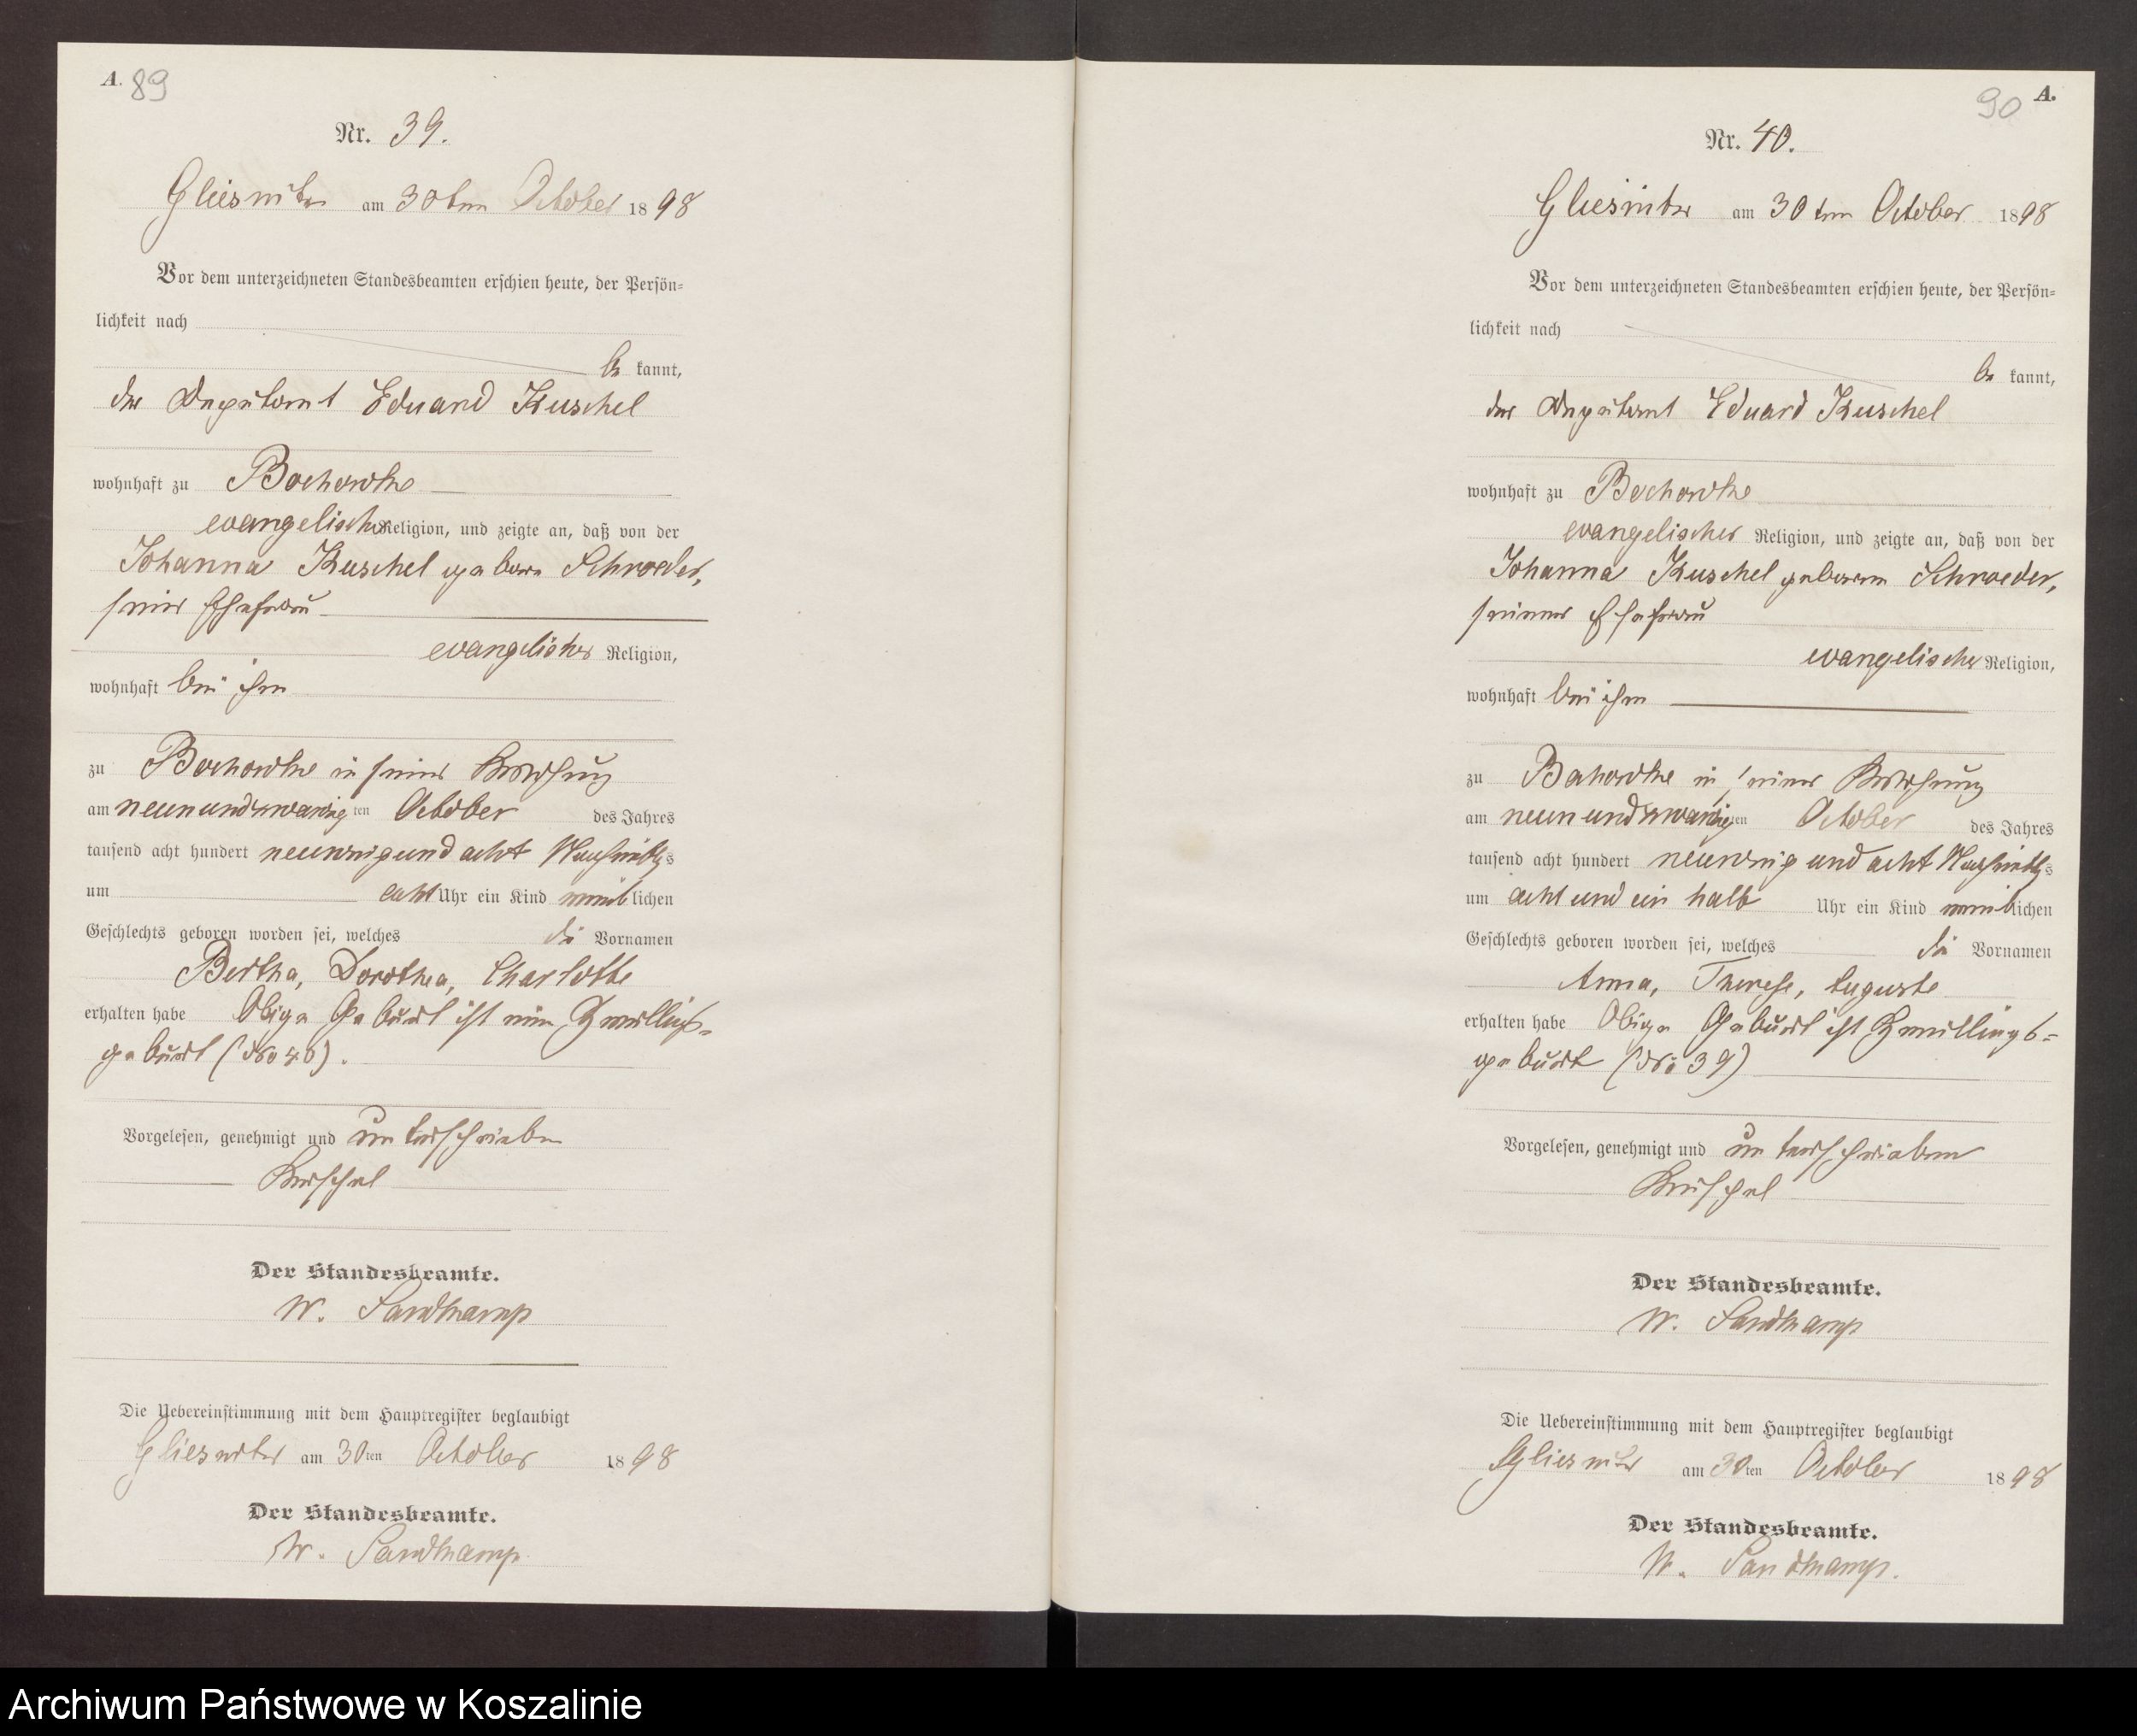 A. 89
Nr. 39.
Gliesnitz am 30ten October 1898
Vor dem unterzeichneten Standesbeamten erschien heute, der Persön-
lichkeit nach
be kannt,
der Deputant Eduard Kuschel
wohnhaft zu Bochowke
evangelischer Religion, und zeigte an, daß von der
Johanna Kuschel geborn Schroeder,
seiner Ehefrau
evangelischer Religion,
wohnhaft bei ihm
zu Bochowke in seiner Wohnung
am neunundzwanzigten October des Jahres
tausend acht hundert neunzig und acht Nachmittags
um acht Uhr ein Kind weiblichen
Geschlechts geboren worden sei, welches die Vornamen
Bertha, Dorothea, Charlotte
erhalten habe Obige Geburt ist eine Zwillings-
geburt (No 40).
Vorgelesen, genehmigt und unterschrieben
Kuschel
Der Standesbeamte.
W. Sandkamp
Die Uebereinstimmung mit dem Hauptregister beglaubigt
Gliesnitz am 30ten October 1898
Der Standesbeamte.
W. Sandkamp
90 A.
Nr. 40.
Gliesnitz am 30ten October 1898
Vor dem unterzeichneten Standesbeamten erschien heute, der Persön-
lichkeit nach
be kannt,
der Deputant Eduard Kuschel
wohnhaft zu Bochowke
evangelischer Religion, und zeigte an, daß von der
Johanna Kuschel geborenen Schroeder,
seiner Ehefrau
evangelischer Religion,
wohnhaft bei ihm
zu Bochowke in seiner Wohnung
am neunundzwanzigten October des Jahres
tausend acht hundert neunzig und acht Nachmittags
um acht und ein halb Uhr ein Kind weiblichen
Geschlechts geboren worden sei, welches die Vornamen
Anna, Therese, Auguste
erhalten habe Obige Geburt ist Zwillings-
geburt (No 39)
Vorgelesen, genehmigt und unterschrieben
Kuschel
Der Standesbeamte.
W. Sandkamp
Die Uebereinstimmung mit dem Hauptregister beglaubigt
Gliesnitz am 30ten October 1898
Der Standesbeamte.
W. Sandkamp.
Archiwum Państwowe w Koszalinie